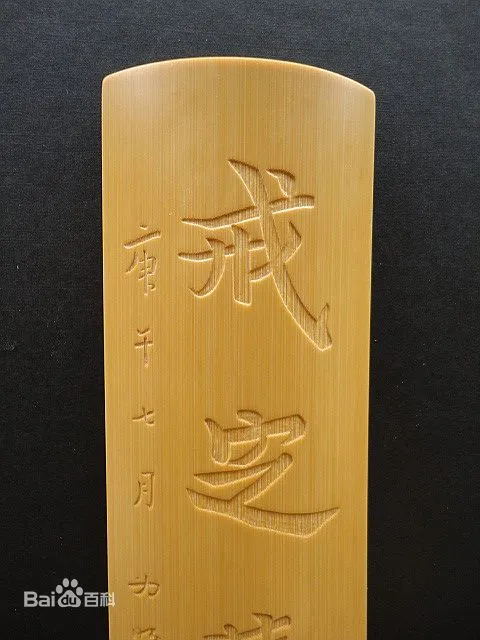 戒定
庚午七月
Baidu百科